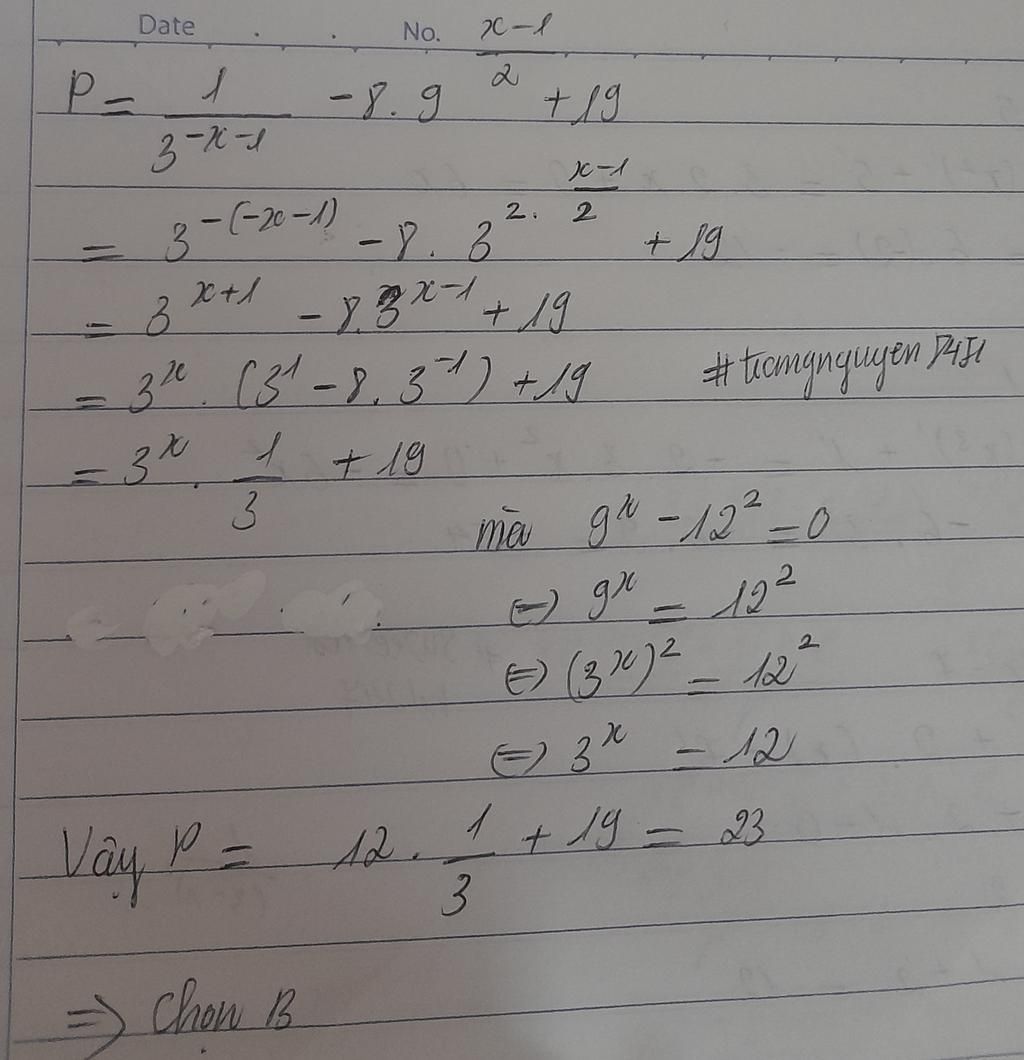 Date . . No.
P = 1/3^(-x-1) - 8.9^((x-1)/2) + 19
= 3^(-(-x-1)) - 8.3^(2.(x-1)/2) + 19
= 3^(x+1) - 8.3^(x-1) + 19
= 3^x . (3^1 - 8.3^(-1)) + 19
= 3^x . 1/3 + 19
mà 9^x - 12^2 = 0
⇔ 9^x = 12^2
⇔ (3^x)^2 = 12^2
⇔ 3^x = 12
Vậy P = 12 . 1/3 + 19 = 23
⇒ Chọn B